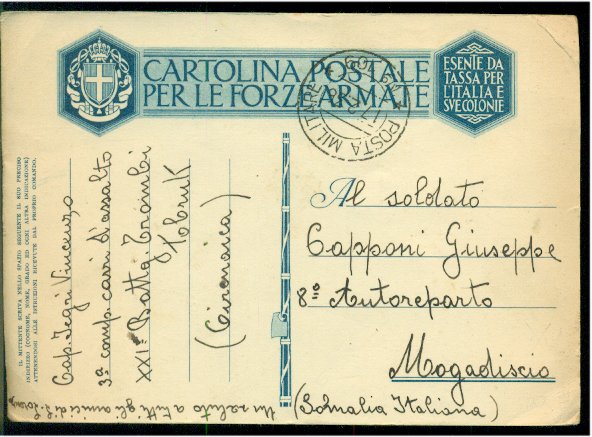 CARTOLINA POSTALE
PER LE FORZE ARMATE
ESENTE DA
TASSA PER
L'ITALIA E
SVE COLONIE
POSTA MILITARE
IL MITTENTE SCRIVA NELLO SPAZIO SEGUENTE IL SUO PRECISO
INDIRIZZO (COGNOME, NOME, GRADO ED OGNI ALTRA INDICAZIONE)
ATTENENDOSI ALLE ISTRUZIONI RICEVUTE DAL PROPRIO COMANDO.
Cap. Tegri Vincenzo
3ª comp. carri d'assalto
XXI° Battg. Trombi
Tobruk
(Cirenaica)
Al soldato
Capponi Giuseppe
8° Autoreparto
Mogadiscio
(Somalia Italiana)
Un saluto a tutti gli amici di S.